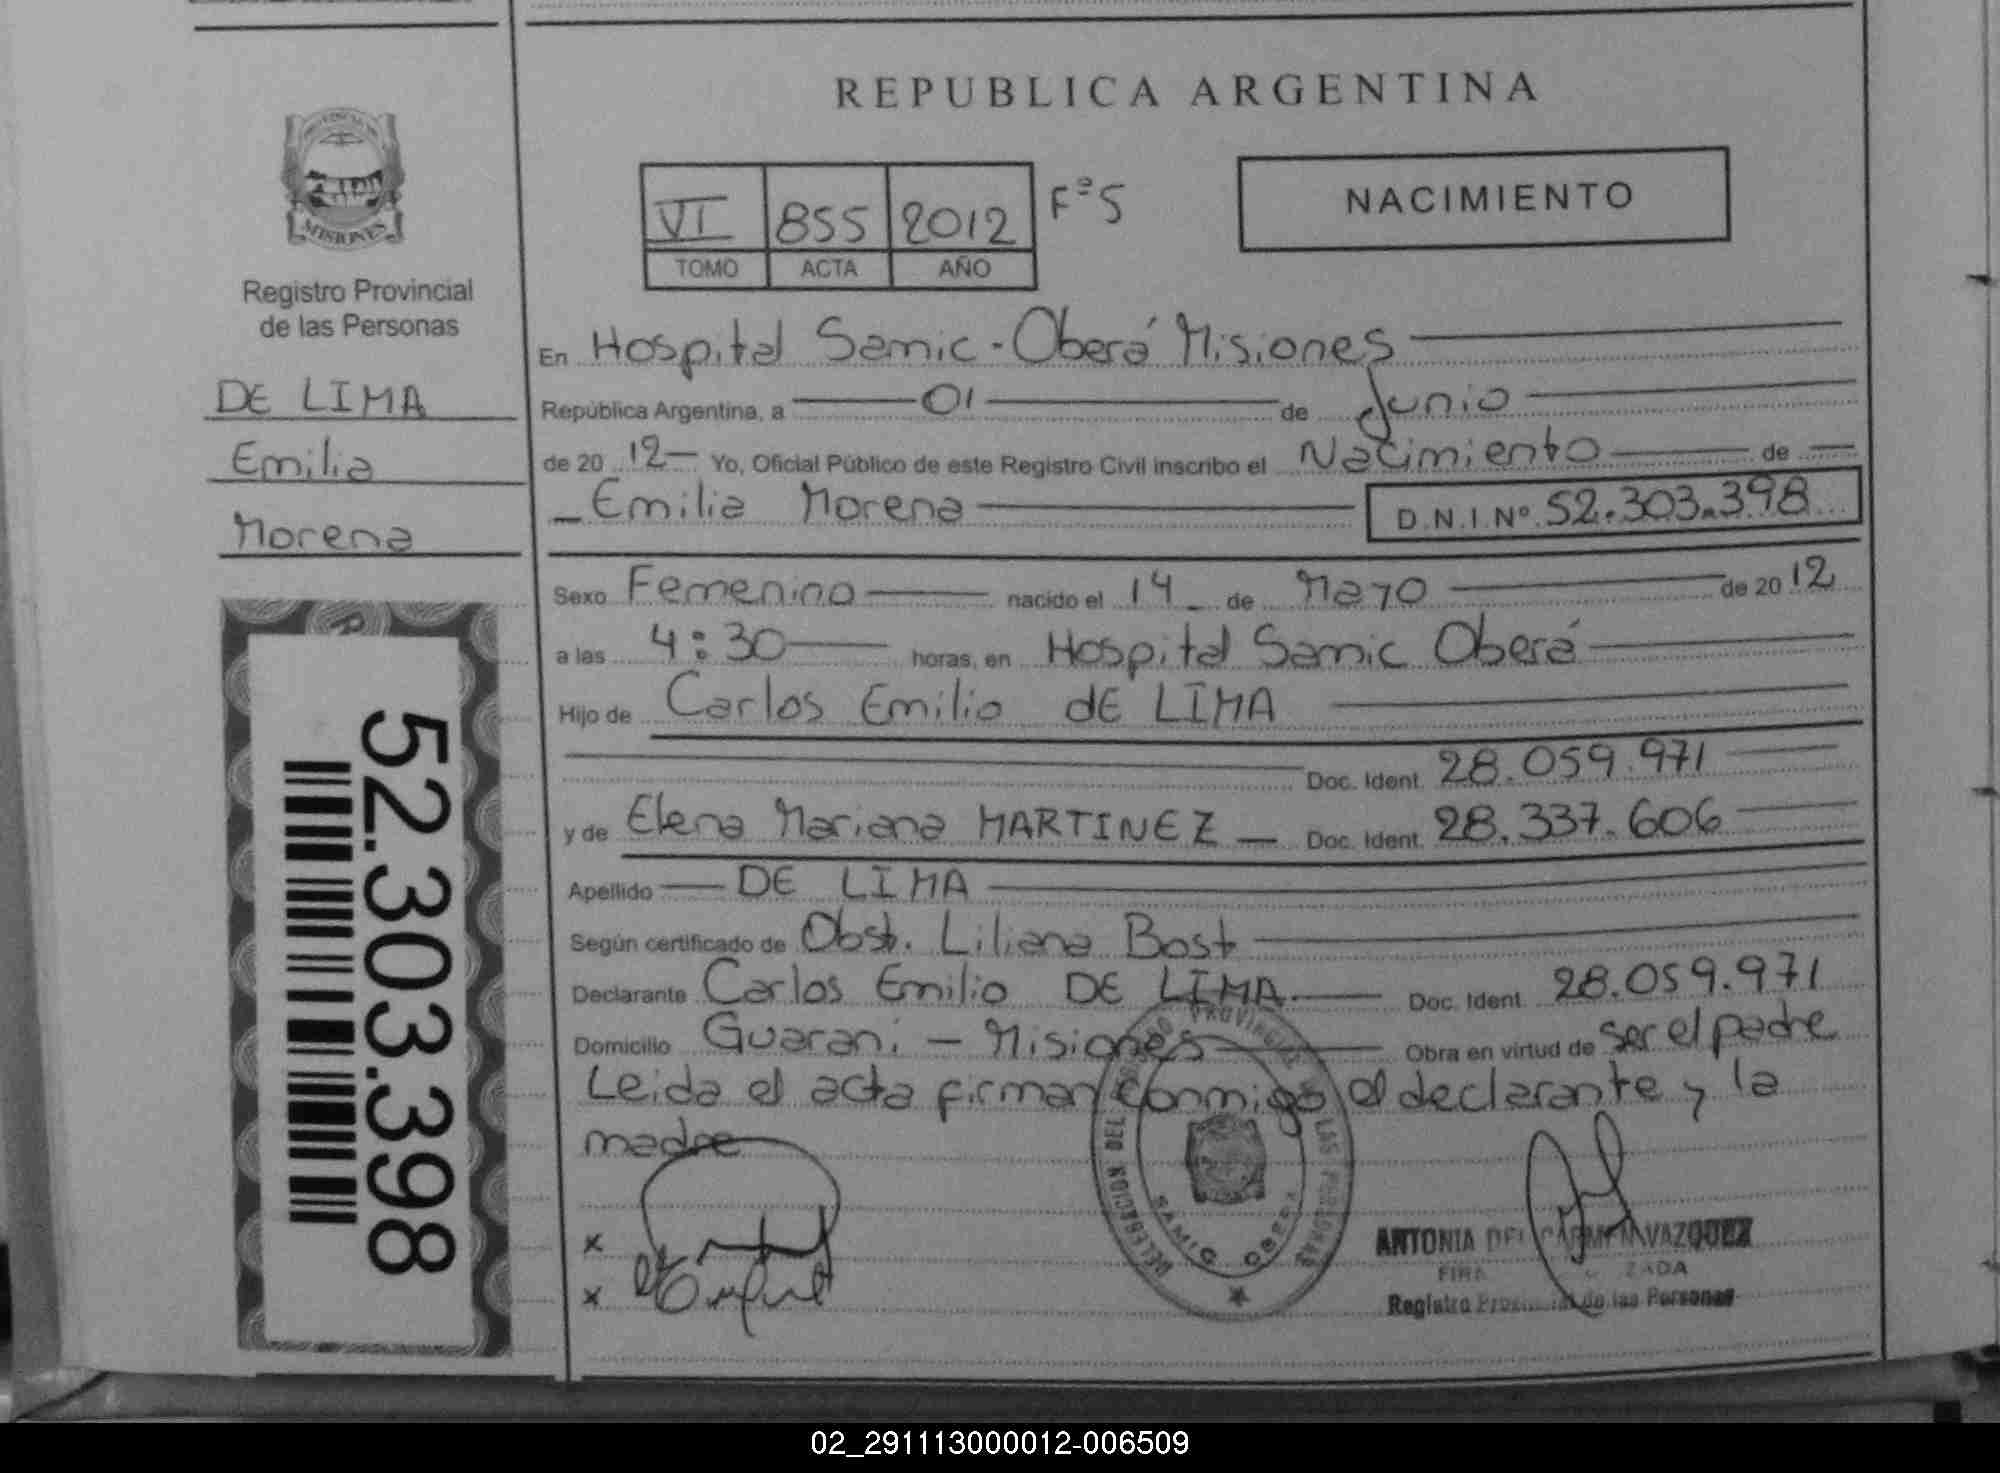 REPUBLICA ARGENTINA
PROVINCIA DE
MISIONES
Registro Provincial
de las Personas
DE LIMA
Emilia
Morena
52.303.398
VI 855 2012 Fº5
TOMO ACTA AÑO
NACIMIENTO
En Hospital Samic - Oberá Misiones
República Argentina, a 01 de Junio
de 20 12 Yo, Oficial Público de este Registro Civil inscribo el Nacimiento de
Emilia Morena D.N.I.Nº 52.303.398
Sexo Femenino nacido el 14 de Mayo de 20 12
a las 4:30 horas, en Hospital Samic Oberá
Hijo de Carlos Emilio dE LIMA
Doc. Ident. 28.059.971
y de Elena Mariana MARTINEZ Doc. Ident. 28.337.606
Apellido DE LIMA
Según certificado de Obst. Liliana Bost
Declarante Carlos Emilio DE LIMA Doc. Ident 28.059.971
Domicilio Guaraní - Misiones Obra en virtud de ser el padre
Leida el acta firman conmigo el declarante y la
madre
x
x
DELEGACION DEL REGISTRO PROVINCIAL DE LAS PERSONAS
SAMIC OBERA
ANTONIA DEL CARMEN VAZQUEZ
Registro Provincial de las Personas
02_291113000012-006509